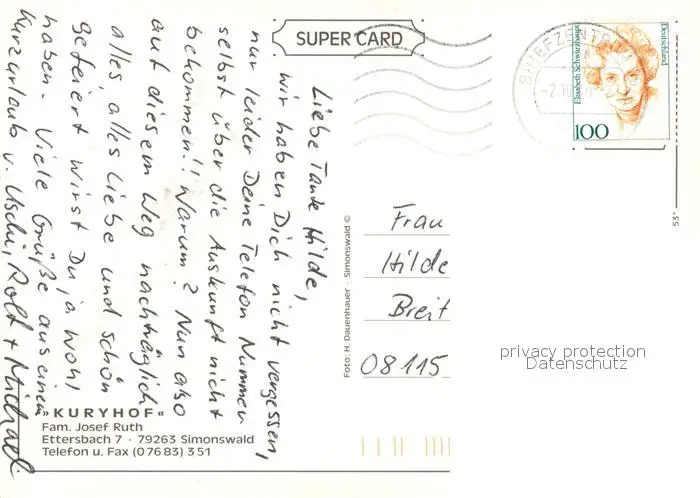 SUPER CARD
Liebe Tante Hilde,
wir haben Dich nicht vergessen,
nur leider Deine Telefon Nummer
selbst über die Auskunft nicht
bekommen!! Warum? Nun also
auf diesem Weg nachträglich
alles, alles Liebe und schön
gefeiert wirst Du ja wohl
haben. Viele Grüße aus einem
Kurzurlaub v. Uschi, Rolf + Michael
»KURYHOF«
Fam. Josef Ruth
Ettersbach 7 · 79263 Simonswald
Telefon u. Fax (0 76 83) 3 51
Foto: H. Dauenhauer · Simonswald ©
BRIEFZENTRUM
Elisabeth Schwarzhaupt
Deutschland
100
53*
Frau
Hilde
Breit
08115
privacy protection
Datenschutz